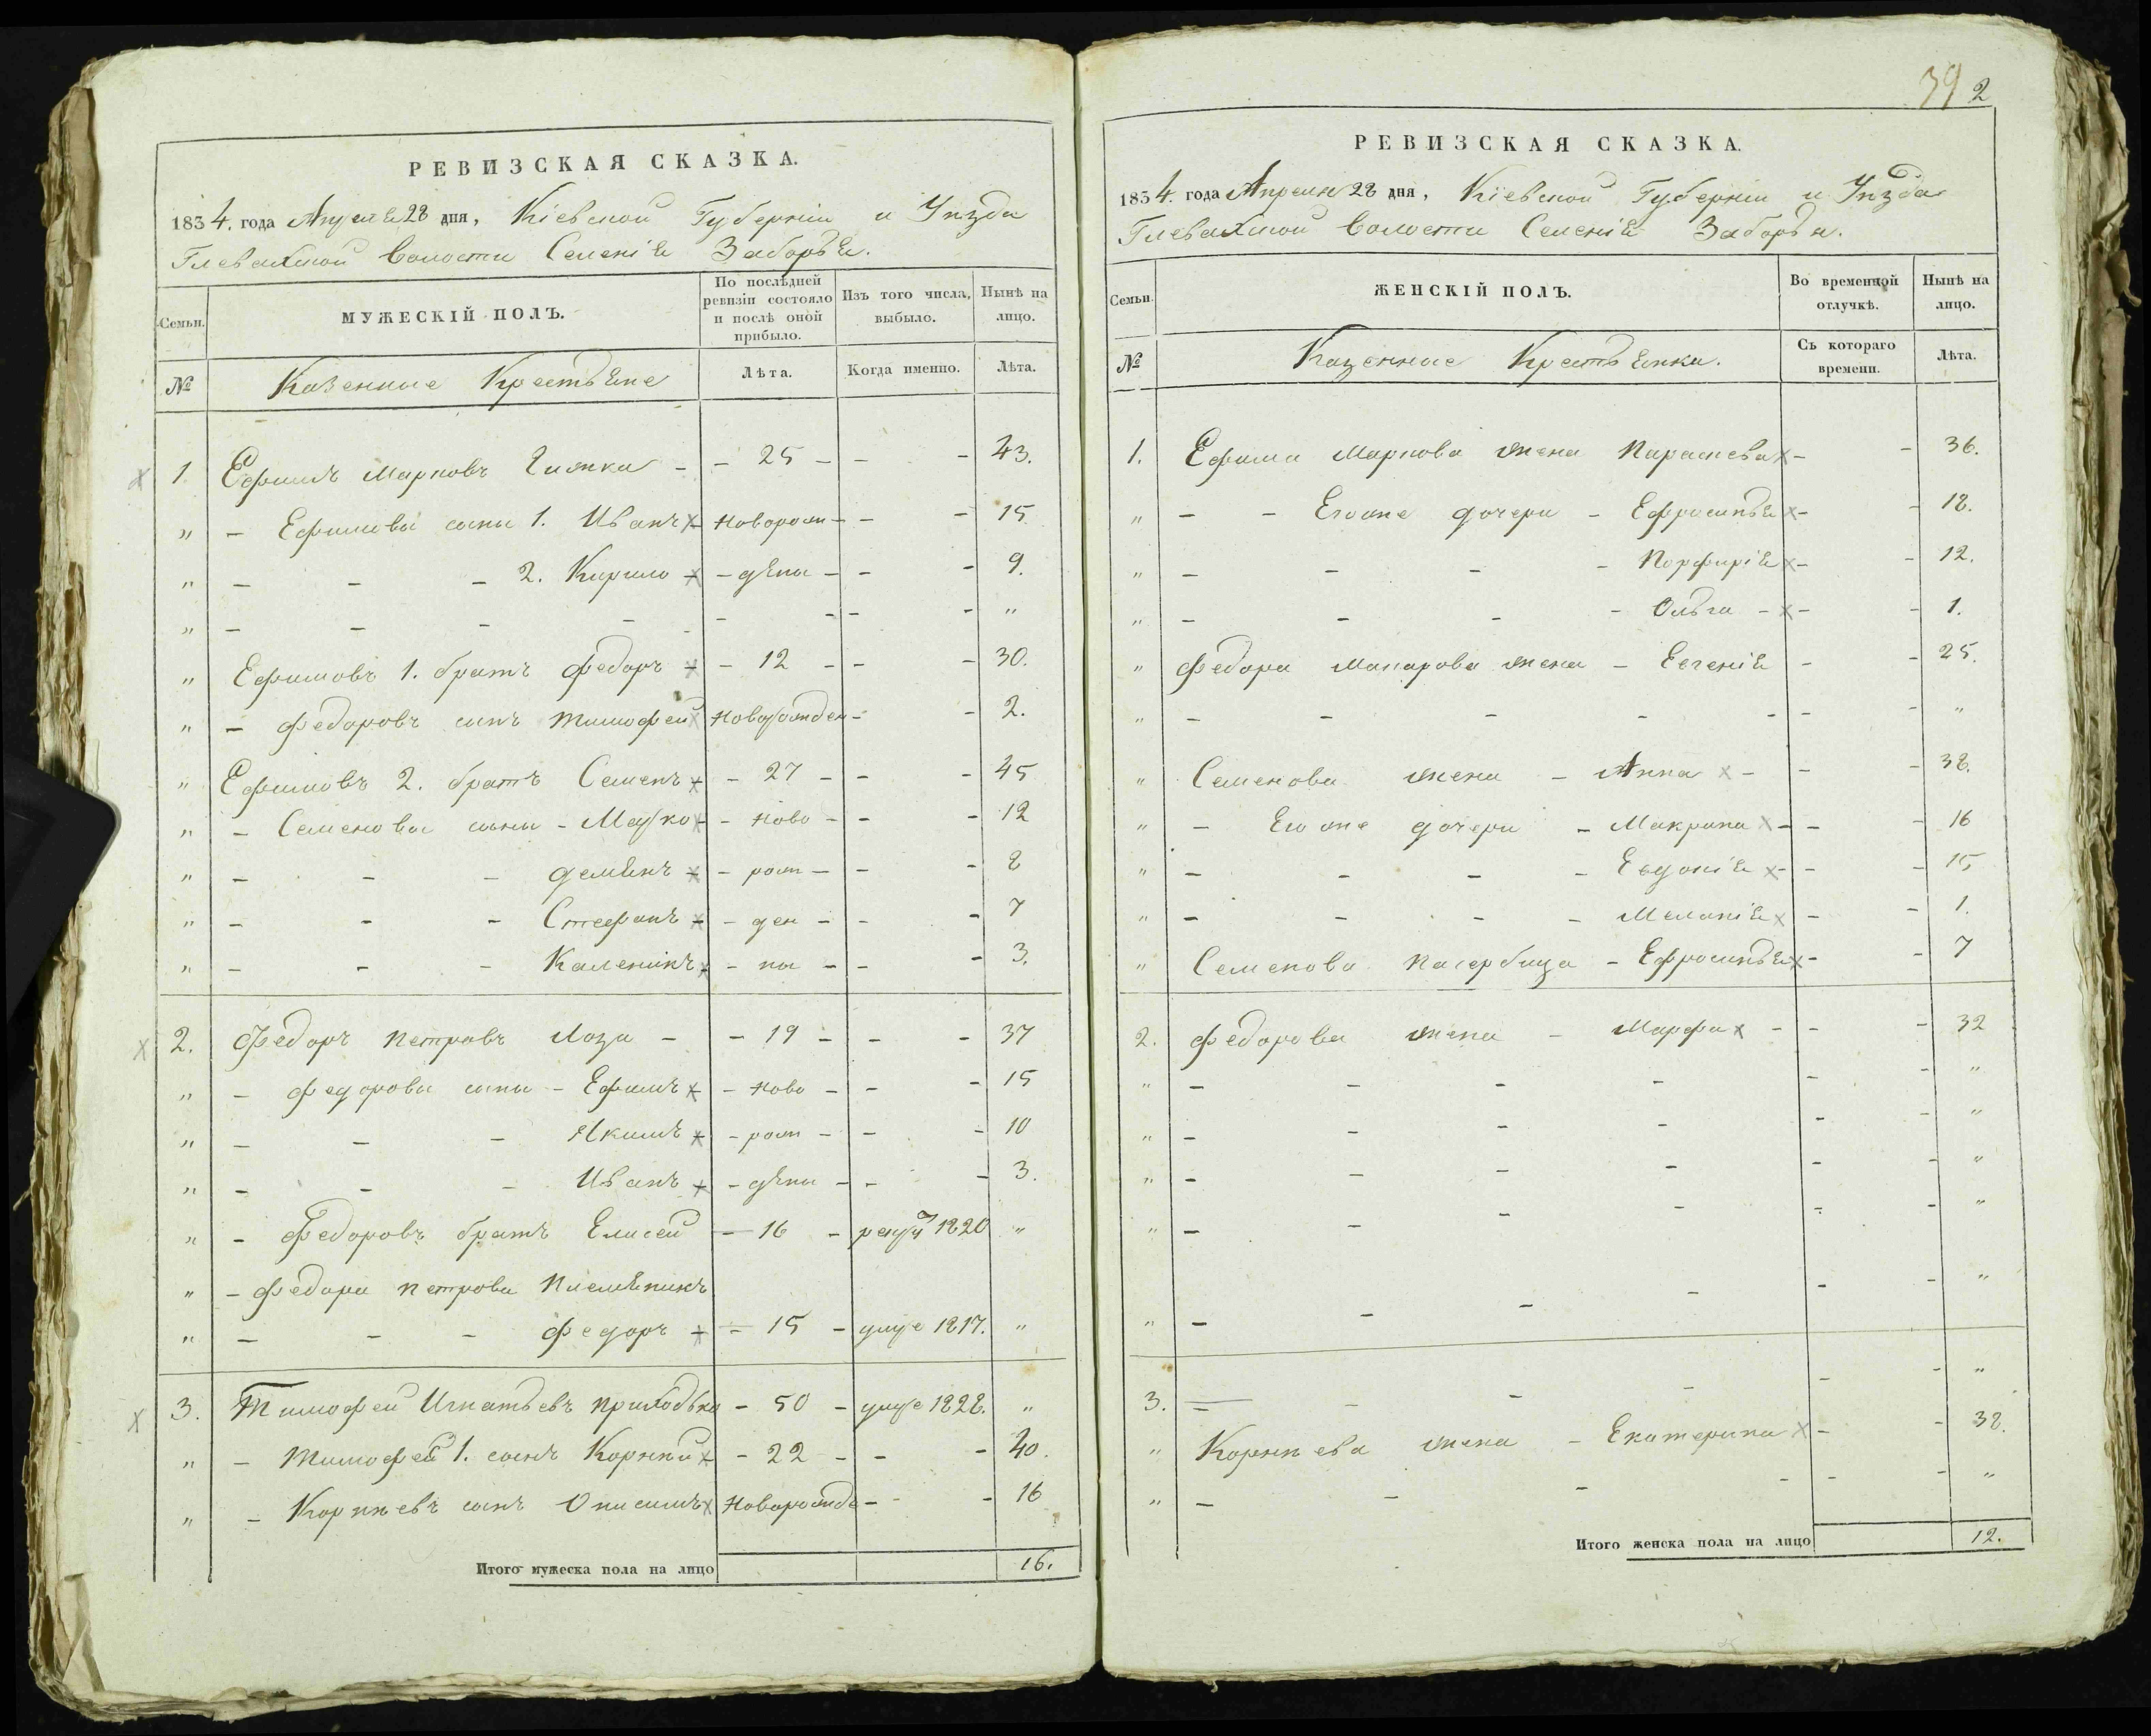 РЕВИЗСКАЯ СКАЗКА.
1834. года Апреля 28 дня, Кіевской Губерніи и Уѣзда
Глевахской Волости Селенія Заборья.
Семьи. МУЖЕСКІЙ ПОЛЪ. По послѣдней ревизіи состояло и послѣ оной прибыло. Изъ того числа, выбыло. Нынѣ на лицо.
№ Казенные Крестьяне Лѣта. Когда именно. Лѣта.
1. Ефимъ Марковъ - - 25 - - - 43.
" - Ефимовы сыны 1. Иванъ - Новорож - - - 15.
" - - - 2. Кирило - - дены - - - 9.
" - - - - - - - - - "
" Ефимовъ 1. братъ Федоръ - - 12 - - - 30.
" - Федоровъ сынъ Тимофей Новорожден - - 2.
" Ефимовъ 2. братъ Семенъ - - 27 - - - 45
" - Семеновы сыны - Марко - - Ново - - - 12
" - - - Демянъ - - рож - - - 8
" - - - Стефанъ - - ден - - - 7
" - - - Каленикъ - - ны - - - 3.
2. Федоръ Петровъ Лоза - - 19 - - - 37
" - Федоровы сыны - Ефимъ - - Ново - - - 15
" - - - Якимъ - - рож - - - 10
" - - - Иванъ - - дены - - - 3.
" - Федоровъ братъ Елисей - 16 - рекру 1820 "
" - Федора Петрова Племяникъ
" - - - Федоръ - - 15 - умре 1817. "
3. Тимофей Игнатьевъ Приходько - 50 - умре 1828. "
" - Тимофея 1. сынъ Корнѣй - - 22 - - - 40.
" - Корнѣевъ сынъ Онисимъ Новорожде - - 16
Итого мужеска пола на лицо 16.
39 2
РЕВИЗСКАЯ СКАЗКА.
1834. года Апреля 28 дня, Кіевской Губерніи и Уѣзда
Глевахской Волости Селенія Заборья.
Семьи. ЖЕНСКІЙ ПОЛЪ. Во временной отлучкѣ. Нынѣ на лицо.
№ Казенные Крестьянки. Съ котораго времени. Лѣта.
1. Ефима Маркова жена Параскева - - 36.
" - - Егоже дочери - Ефросинья - - 18.
" - - - - Порфирія - - 12.
" - - - - Ольга - - - 1.
" Федора Макарова жена - Евгенія - - 25.
" - - - - - - - "
" Семенова жена - Анна - - - 38.
" - Егоже дочери - Макрина - - - 16
" - - - - Евдокія - - - 15
" - - - - Меланія - - 1.
" Семенова Пасербица - Ефросинья - - 7
2. Федорова жена - Марфа - - - 32
" - - - - - - "
" - - - - - - "
" - - - - - - "
" - - - - - - "
" - - - - - - "
3. - - - - - - "
" Корнѣева жена - Екатерина - - 38.
" - - - - - - "
Итого женска пола на лицо 12.